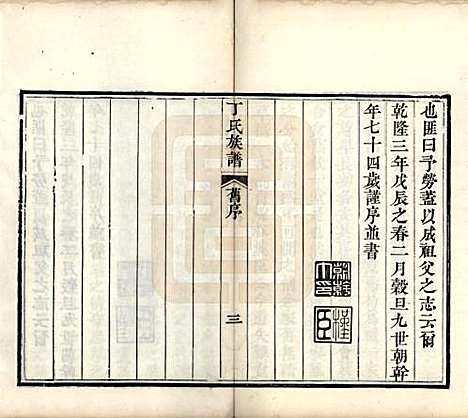 也匪曰予勞蓋以成祖父之志云爾
乾隆三年戊辰之春二月穀旦九世朝幹
年七十四歲謹序並書
丁氏族譜
舊序
三